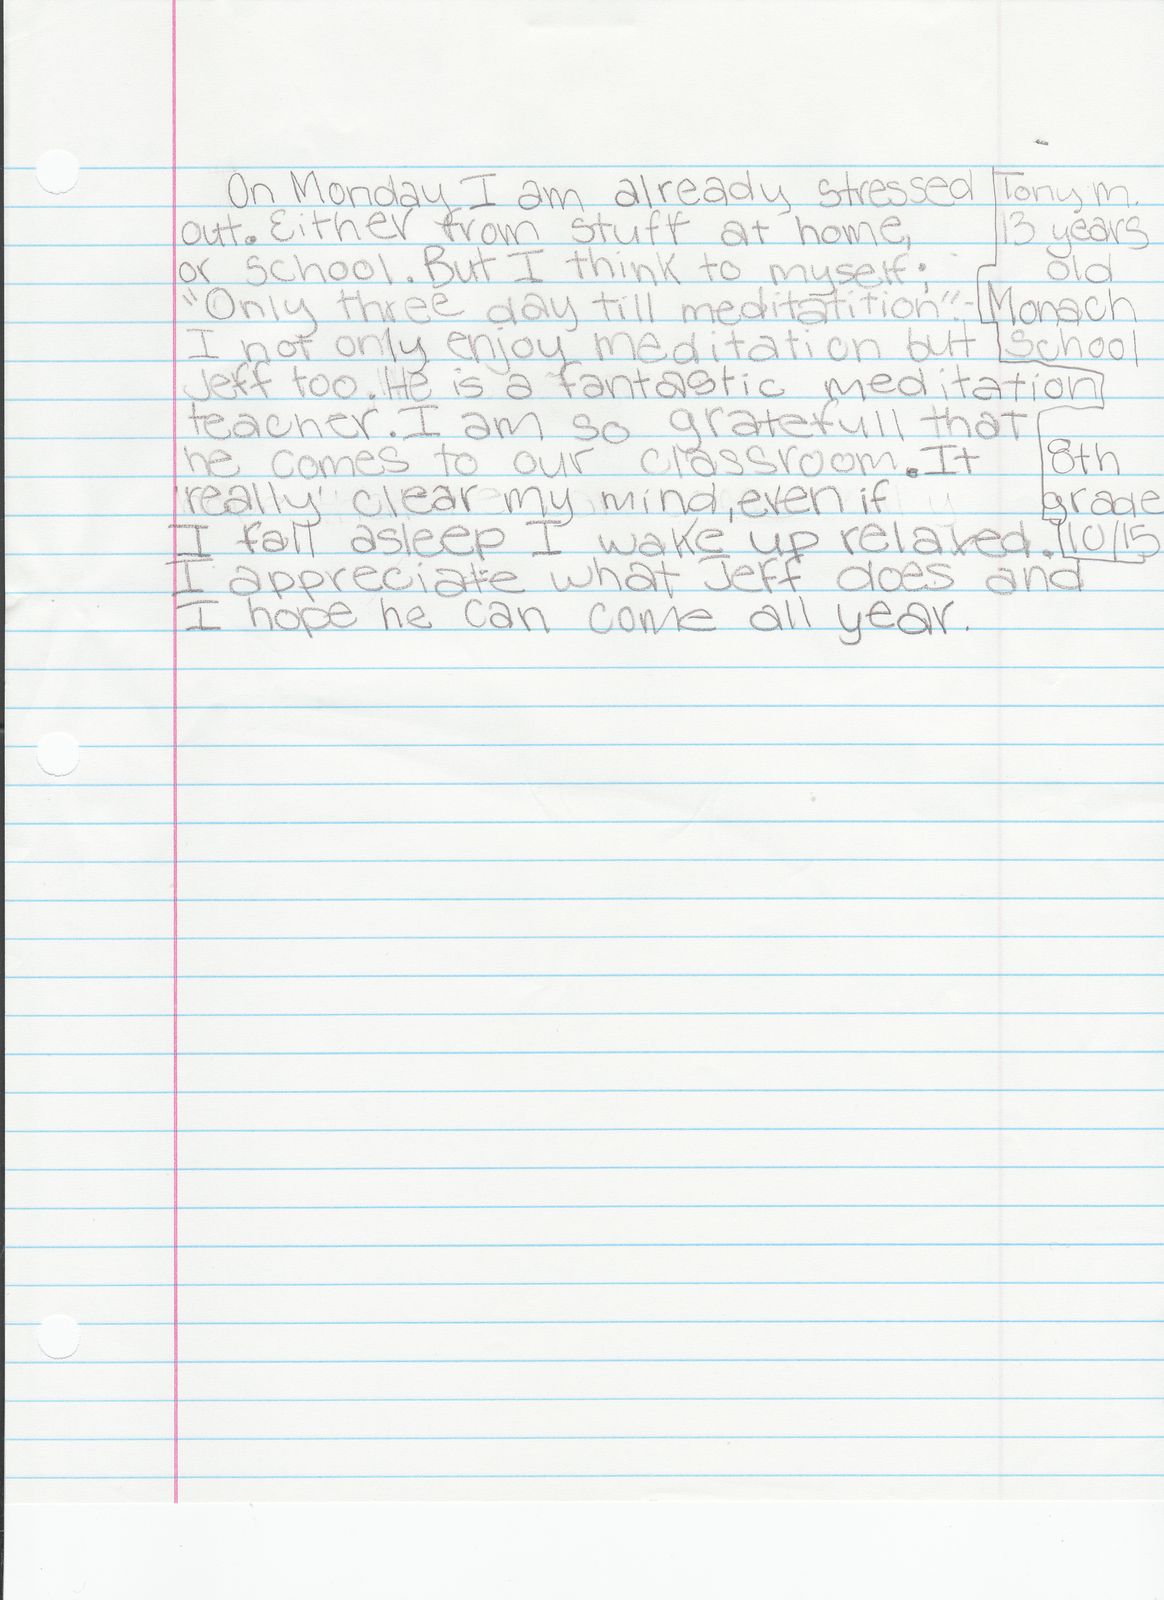 On Monday I am already stressed
out. Either from stuff at home,
or school. But I think to myself;
"Only three day till meditatition"-
I not only enjoy meditation but
Jeff too. He is a fantastic meditation
teacher. I am so gratefull that
he comes to our classroom. It
'really' clear my mind, even if
I fall asleep I wake up relaxed.
I appreciate what Jeff does and
I hope he can come all year.
Tony M.
13 years
old
Monach
School
8th
grade
10/15